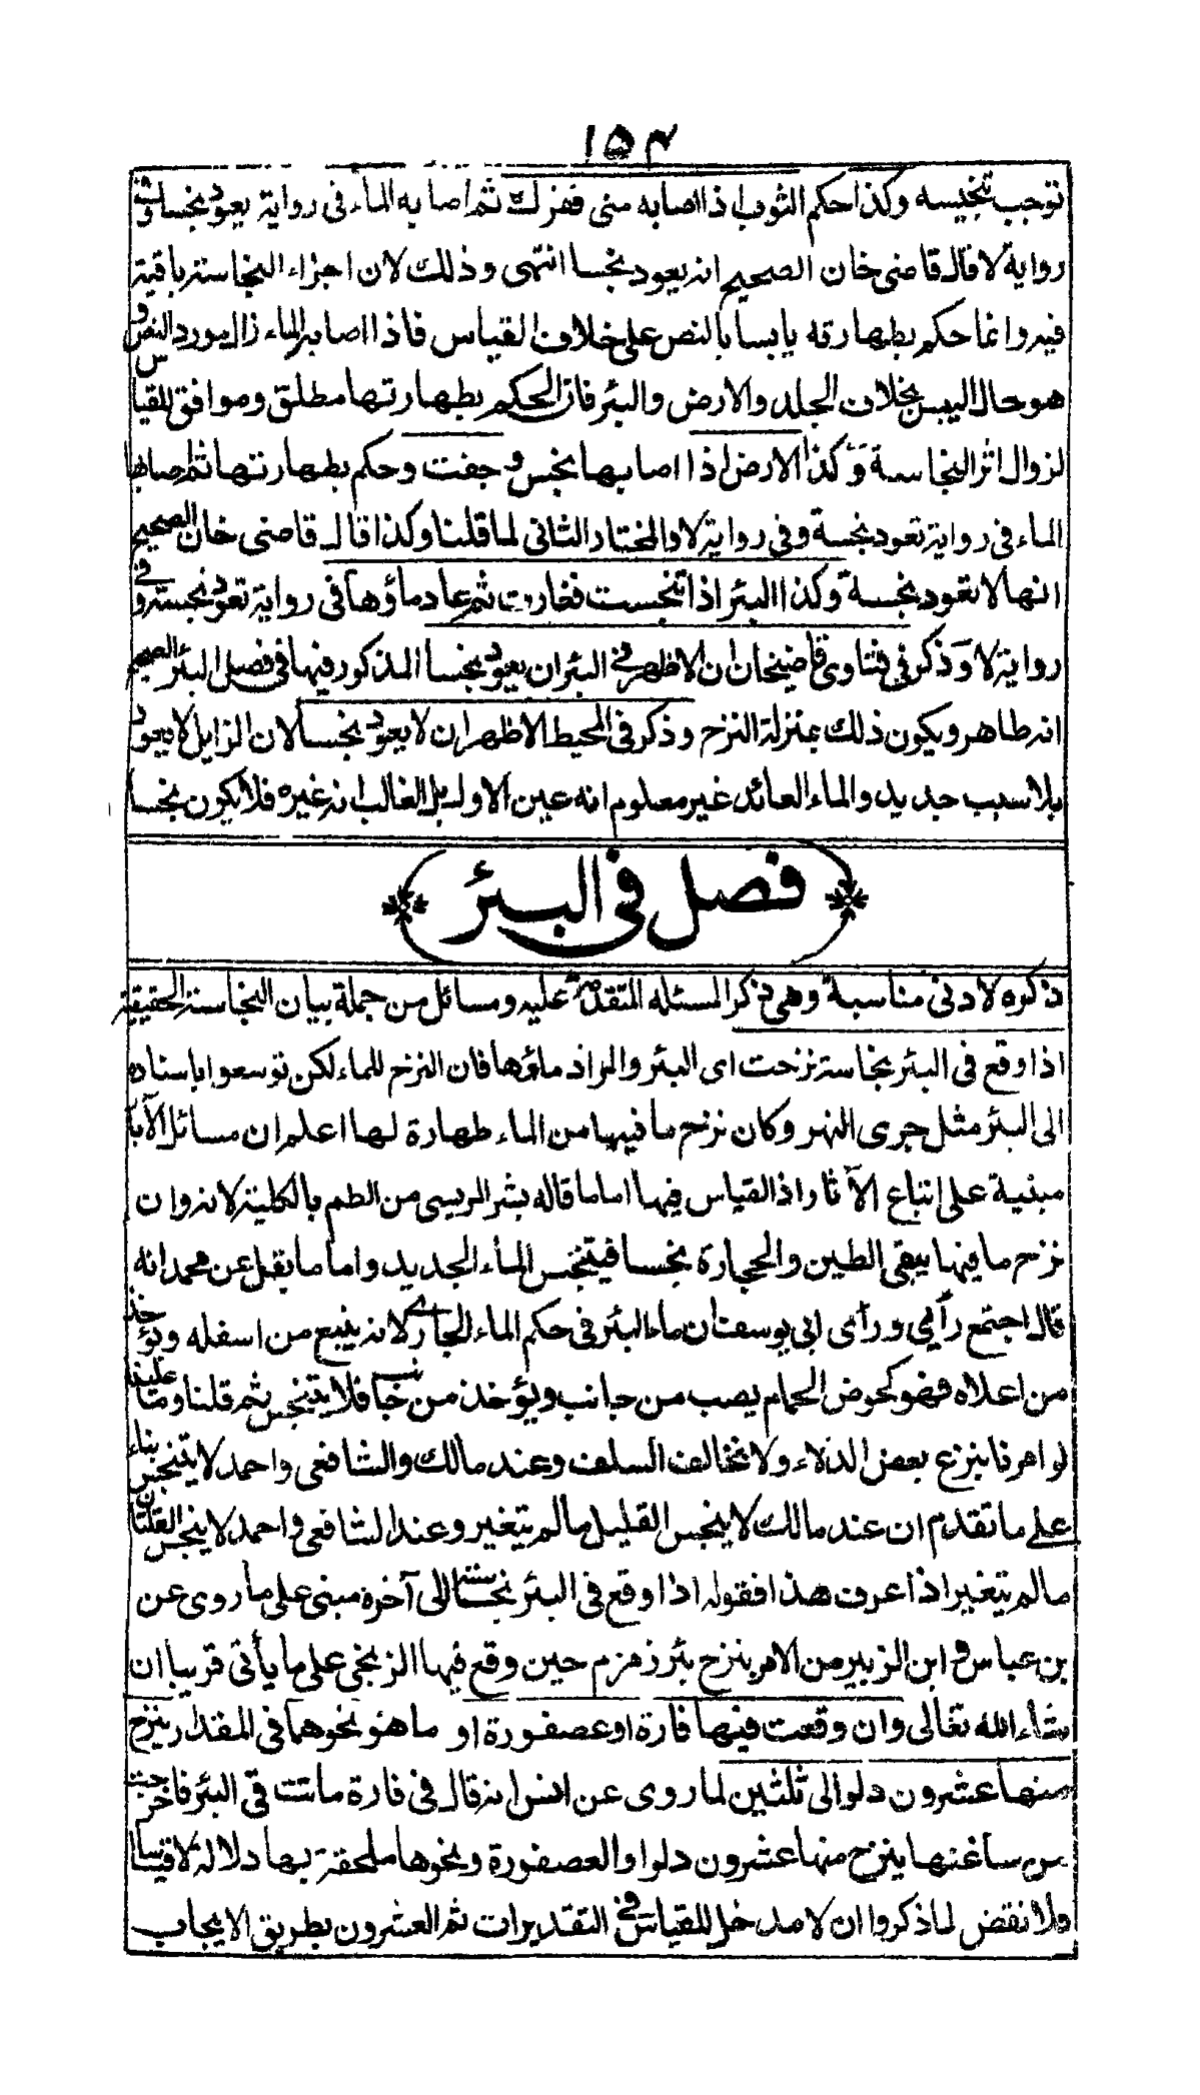 ١٥٤
توجب تنجيسه وكذا حكم الثوب اذا اصابه منى ففرك ثم اصابه الماء فى رواية يعود نجسا وفى
رواية لا قال قاضى خان الصحيح انه يعود نجسا انتهى وذلك لان اجزاء النجاسة باقية
فيه وانما حكم بطهارته يابسا بالنص على خلاف القياس فاذا اصابه الماء زال مورد النص و
هو حال اليبس بخلاف الجلد والارض والبئر فان الحكم بطهارتها مطلق وموافق للقياس
لزوال اثر النجاسة وكذا الارض اذا اصابها نجس وجفت وحكم بطهارتها ثم اصابها
الماء فى رواية تعود نجسة وفى رواية لا والمختار الثانى لما قلنا وكذا قال قاضى خان الصحيح
انها لا تعود نجسة وكذا البئر اذا تنجست فغارت ثم عاد ماؤها فى رواية تعود نجسة وفى
رواية لا وذكر فى فتاوى قاضيخان ان الاظهر فى البئر ان يعود نجسا المذكور فيها فى فصل البئر الصحيح
انه طاهر ويكون ذلك بمنزلة النزح وذكر فى المحيط الاظهر ان لا يعود نجسا لان الزايل لا يعود
بلا سبب جديد والماء العائد غير معلوم انه عين الاول بل الغالب انه غيره فلا يكون نجسا
فصل فى البئر
ذكره لادنى مناسبة وهى ذكر المسئله المتقدمة عليه ومسائل من جملة بيان النجاسة الحقيقية
اذا وقع فى البئر نجاسة نزحت اى البئر والمراد ماؤها فان النزح للماء لكن توسعوا باسناده
الى البئر مثل جرى النهر وكان نزح ما فيها من الماء طهارة لها اعلم ان مسائل الآبار
مبنية على اتباع الآثار اذ القياس فيها اما ما قاله بشر المريسى من الطم بالكلية لانه وان
نزح ما فيها يبقى الطين والحجارة نجسا فيتنجس الماء الجديد واما ما نقل عن محمد انه
قال اجتمع رأيى ورأى ابى يوسف ان ماء البئر فى حكم الماء الجارى لانه ينبع من اسفله ويؤخذ
من اعلاه فهو كحوض الحمام يصب من جانب ويؤخذ من جانب فلا يتنجس ثم قلنا وما علينا
لو امرنا بنزع بعض الدلاء ولا نخالف السلف وعند مالك والشافعى واحمد لا يتنجس بناء
على ما تقدم ان عند مالك لا ينجس القليل ما لم يتغير وعند الشافعى واحمد لا ينجس القلتان
ما لم يتغير اذا عرف هذا فقوله اذا وقع فى البئر نجاسة الى آخره مبنى على ما روى عن
بن عباس و ابن الزبير من الامر بنزح بئر زمزم حين وقع فيها الزنجى على ما يأتى قريبا ان
شاء الله تعالى وان وقعت فيها فارة او عصفورة او ما هو نحوهما فى المقدار ينزح
منها عشرون دلوا الى ثلثين لما روى عن انس انه قال فى فارة ماتت فى البئر فاخرجت
من ساعتها ينزح منها عشرون دلوا والعصفورة ونحوها ملحقة بها دلالة لا قياسا
فلا نقض لما ذكروا ان لا مدخل للقياس فى التقديرات ثم العشرون بطريق الايجاب